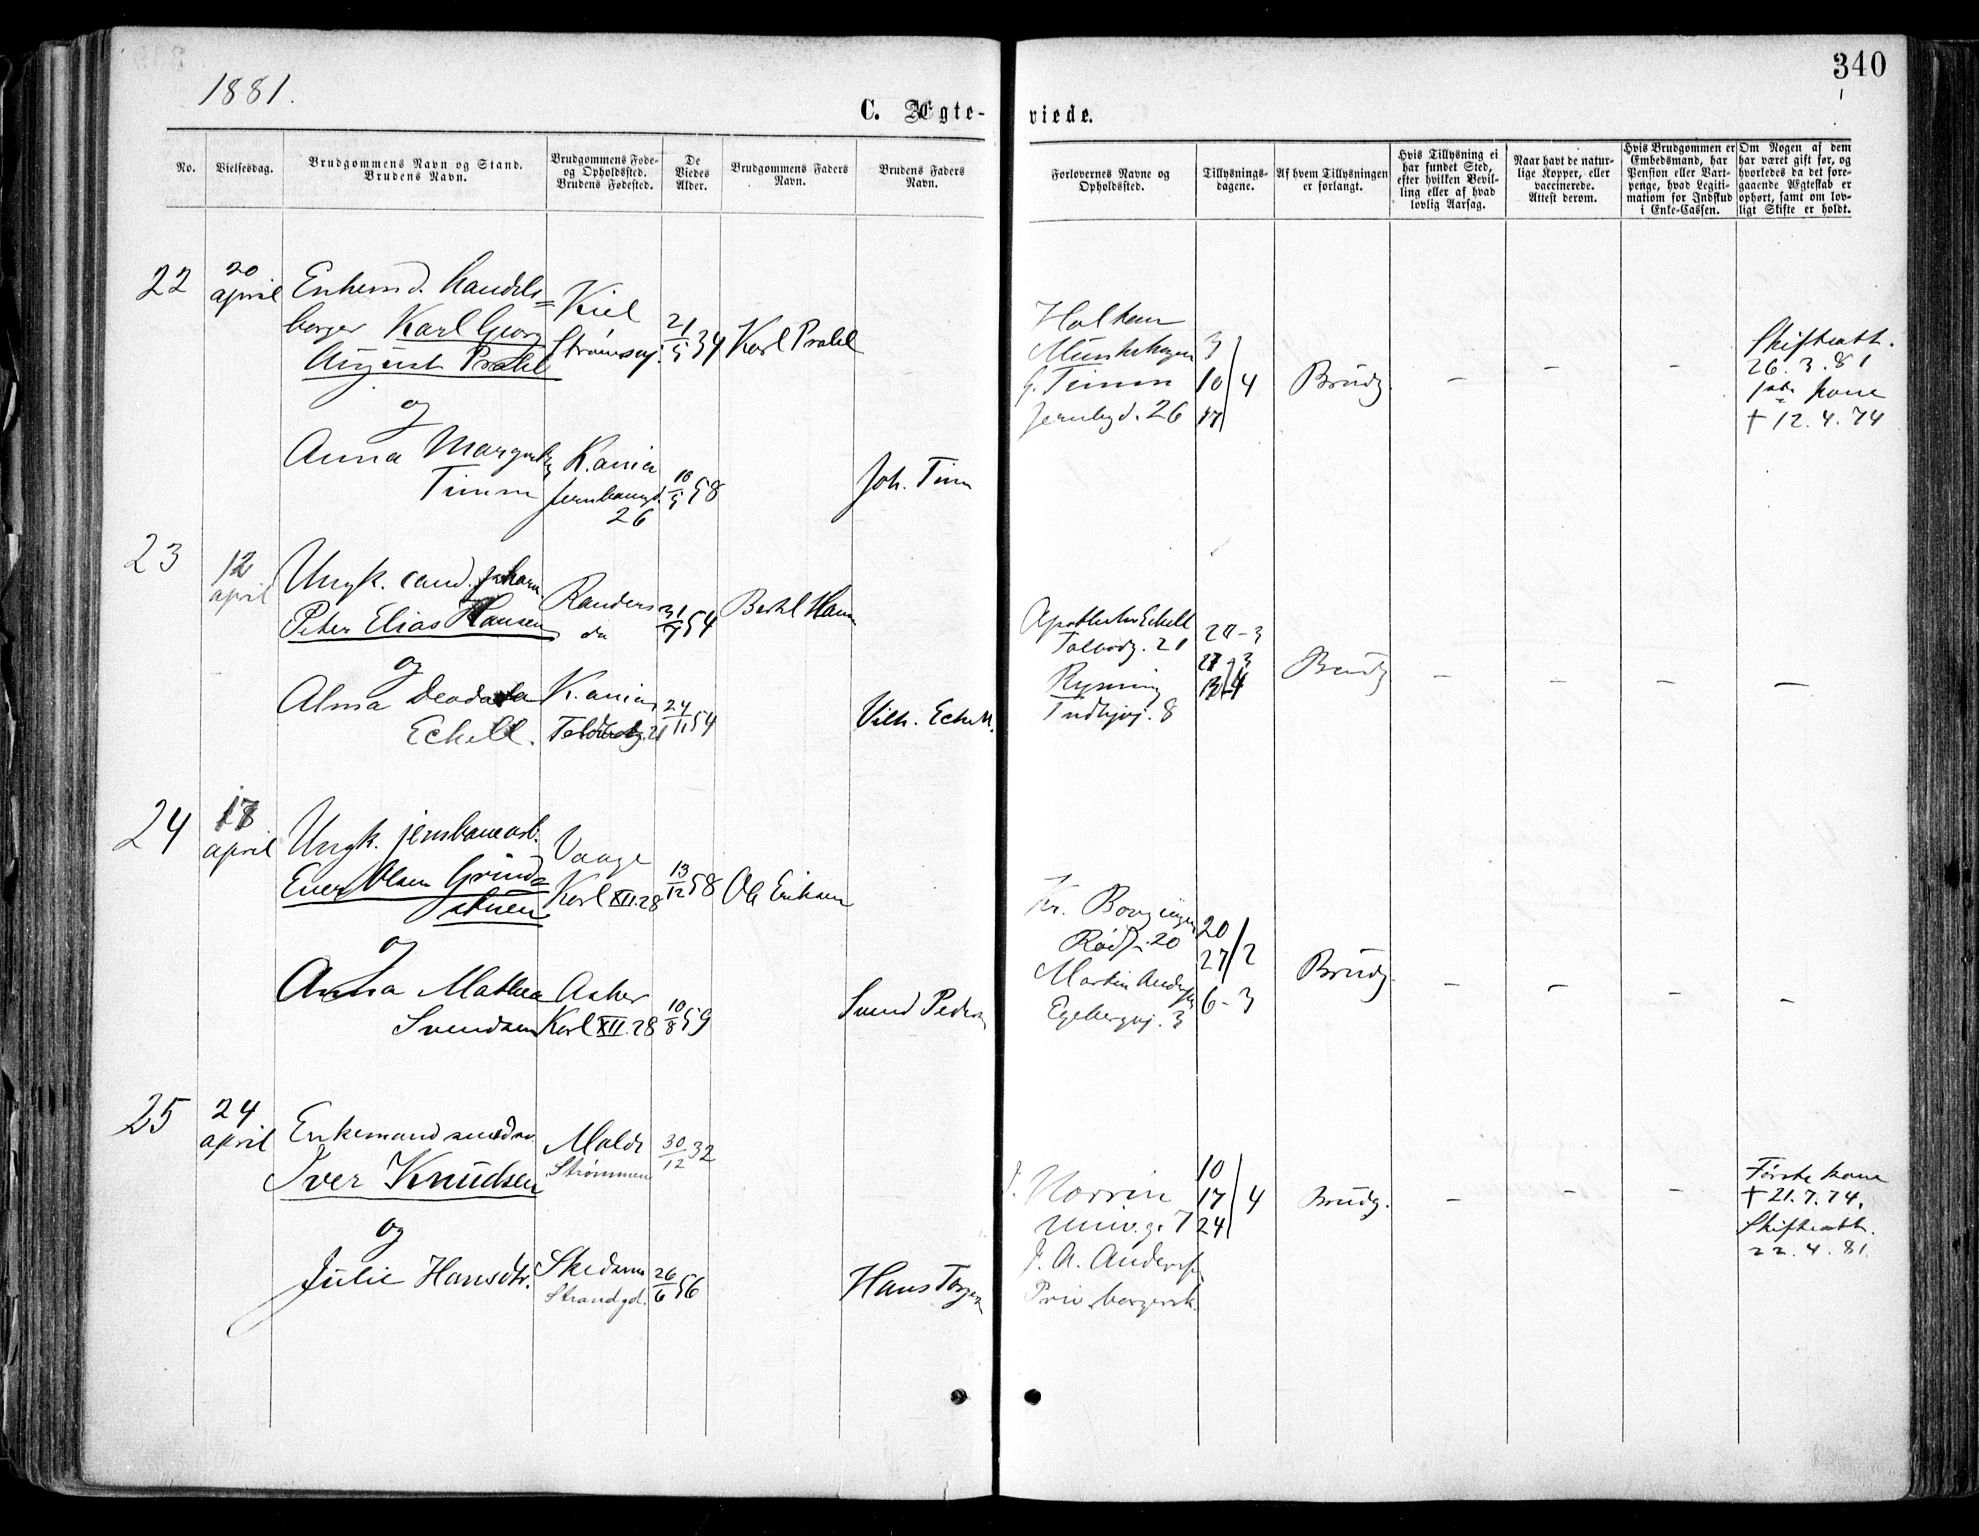 340
1881.
C. Ægte-
viede.
No.
Vielsesdag.
Brudgommens Navn og Stand.
Brudens Navn.
Brudgommens Føde-
og Opholdssted.
Brudens Fødested.
De
Viedes
Alder.
Brudgommens Faders
Navn.
Brudens Faders
Navn.
Forlovernes Navne og
Opholdssted.
Tillysnings-
dagene.
Af hvem Tillysningen
er forlangt.
Hvis Tillysning ei
har fundet Sted,
efter hvilken Bevil-
ling eller af hvad
lovlig Aarsag.
Naar havt de natur-
lige Kopper, eller
vaccinerede.
Attest derom.
Hvis Brudgommen er
Embedsmand, har
Pension eller Vart-
penge, hvad Legiti-
mation for Indskud
i Enke-Cassen.
Om Nogen af dem
har været gift før, og
hvorledes da det fore-
gaaende Ægteskab er
ophørt, samt om lov-
ligt Skifte er holdt.
22
20
april
Enkemd. handels=
borger Karl Georg
August Prahl
og
Anna Margrethe
Timm
Kiel
Strømsvj.
K.ania
Jernbanegd.
26
21/5 34
10/5 58
Karl Prahl
Joh. Timm
Münsterhagen
G. Timm
Jernbgd. 26
3
10/4
17
Brudg.
– – –
Skifteatt.
26.3.81
1ste kone
† 12.4.74
23
12
april
Ungk. cand. pharm.
Peter Elias Hansen
og
Alma Deodata
Eckell.
Randers
do
K.ania
Toldbodg. 21
31/7 54
24/11 54
Bertel Hansen
Vilh. Eckell.
Apotheker Eckell
Toldbodg. 21
Rynning
8
20-3
27-3
3/4
Brudg.
– – – –
24
17
april
Ungk. jernbanearb.
Ener Olsen Grind=
stuen
og
Anna Mathea
Svendsen
Vaage
Karl XII. 28
Asker
Karl XII. 28
13/12 58
10/8 59
Ole Eriksen
Svend Pedersen
Kr.
Rødf. 20
Martin Andersen
Egebergvj. 3
20
27/2
6-3
Brudg.
– – – –
25
24
april
Enkemand smedsv.
Iver Knudsen
og
Julie Hansdtr.
Molde
Strømmen
Skedsmo
Strandgd.
30/12 32
26/6 56
Hans Torgersen
J. Norrin
Univ.g. 7
J. A. Andersen
Priv.
10
17/4
24
Brudg.
– – –
Første kone
† 21.7.74.
Skifteatt.
22.4.81.